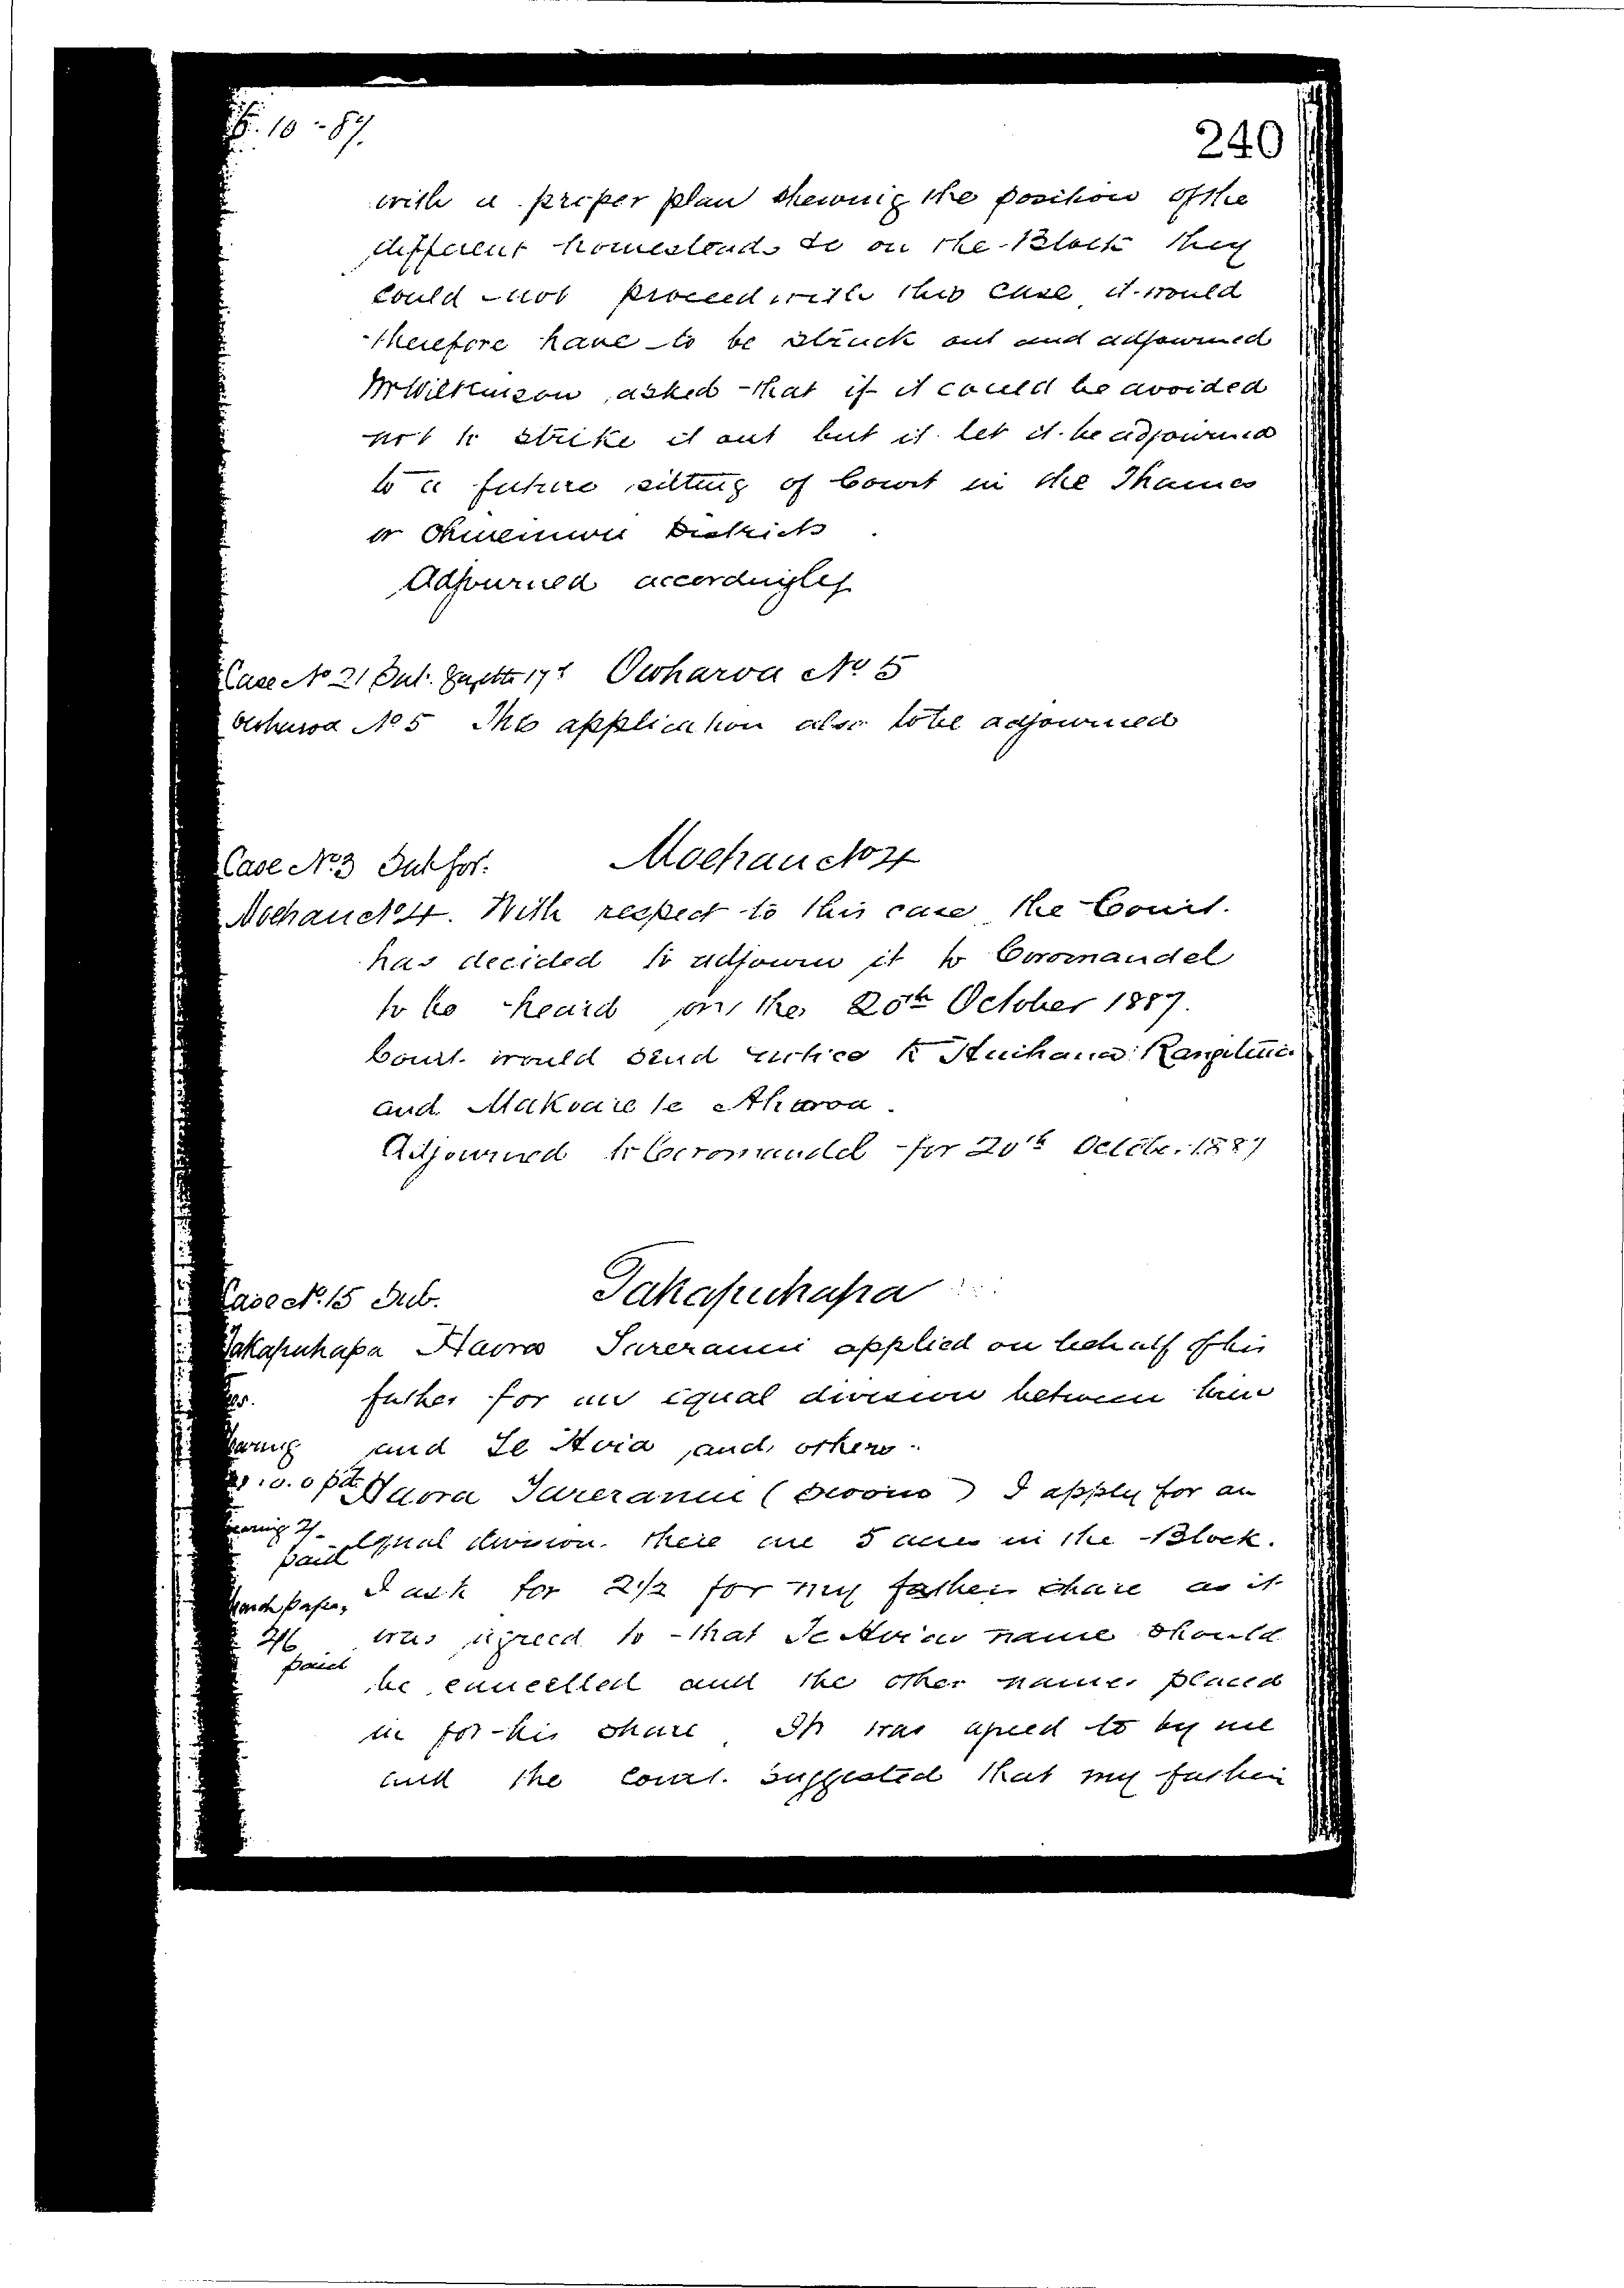 10-87.
240
with a proper plan shewing the position of the
different homesteads &c on the Block they
could not proceed with this case it would
therefore have to be struck out and adjourned
Mr Wilkinson asked that if it could be avoided
not to strike it out but it let it be adjourned
to a future sitting of Court in the Thames
or Ohinemuri Districts
Adjourned accordingly
Case No 21 Sub. Gazette Owharoa No 5
Owharoa No 5 This application also to be adjourned
Case No 3 Sub for. Moehau No 4
Moehau No 4. With respect to this case the Court.
has decided to adjourn it to Coromandel
to be heard on the 20th October 1887.
Court would send notice to
and Makoare te
Adjourned to Coromandel for 20th October 1887
Case No. 15 Sub. Takapuhapa
Takapuhapa Haora Tareranui applied on behalf of his
father for an equal division between him
and Te Avia and others.
Haora Tareranui (sworn) I apply for an
paid equal division. there are 5 acres in the Block.
I ask for 2 1/2 for my father share as it
2/6 was agreed to that Te name should
paid be cancelled and the other names placed
in for his share It was agreed to by me
and the Court. suggested that my father